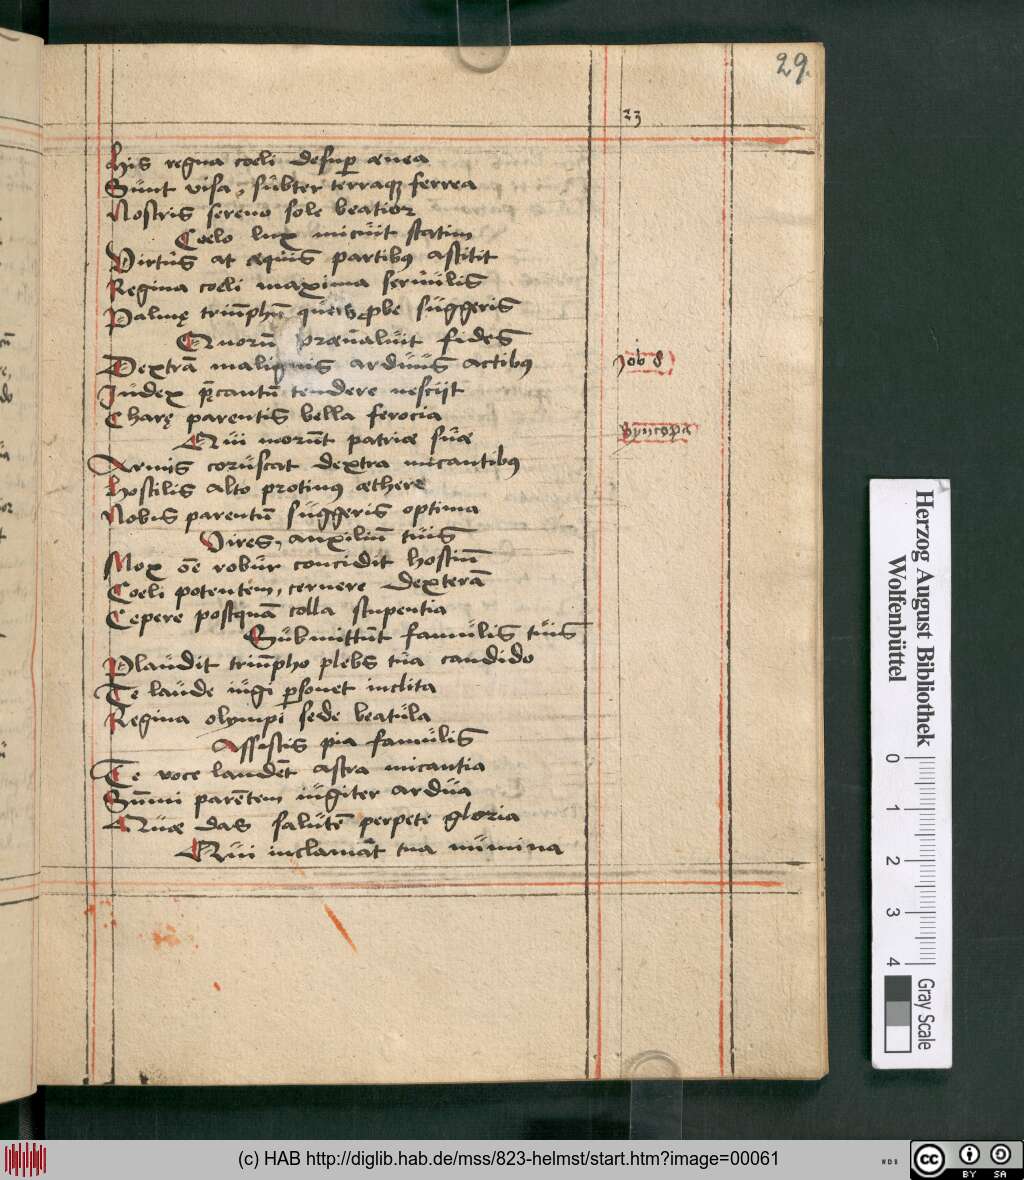 29.
23
His regna coeli desuꝑ ænea
Sunt visa, subter terraqꝫ ferrea
Nostris sereno sole beatior
Coelo lux micuit statim
Virtus at æquis partibꝰ astitit
Regina coeli maxima servulis
Palmę triūphū quers ꝓbe suggeris
Quorū prævaluit fides
Dextrā malignis arduus actibꝰ
Job 8
Iudex p̄cantū tendere nescijt
Charę parentis bella ferocia
Syncopa
Qui morūt patriæ suæ
Armis coruscat dextra micantibꝰ
Hostilis alto protinꝰ æthere
Nobis parentū suggeris optima
Vires, auxiliū tuis
Mox oē robur concidit hostiū
Coeli potentem, cernere dexterā
Cepere postquā colla stupentia
Submittūt famulis tuis
Plaudit triūpho plebs tua candido
Te laude iugi ꝑsonet inclita
Regina olympi sede beatula
Assistis pia famulis
Te voce laudēt astra micantia
Sūmi parētem iugiter ardua
Quæ das salutē perpete gloria
Qui inclamāt tua numina
Herzog August Bibliothek
Wolfenbüttel
0 1 2 3 4
Gray Scale
(c) HAB http://diglib.hab.de/mss/823-helmst/start.htm?image=00061
WDB
cc BY SA